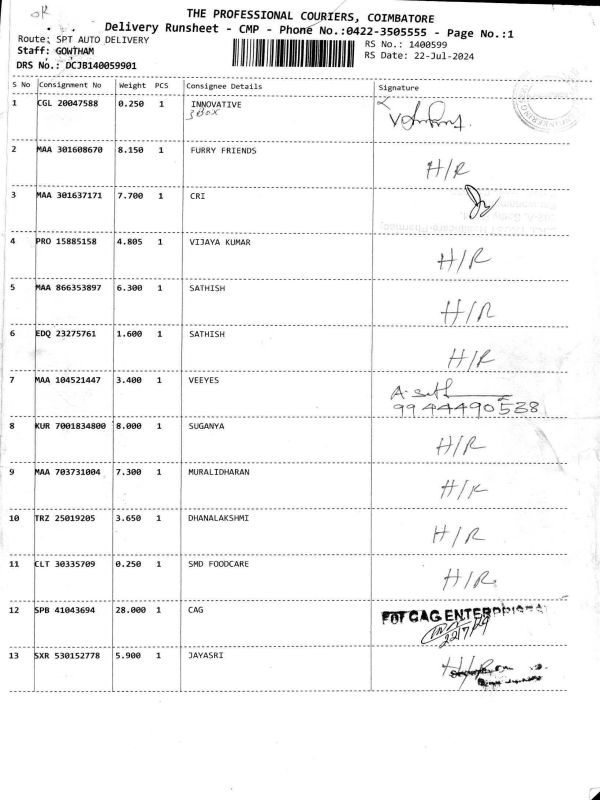 OR
THE PROFESSIONAL COURIERS, COIMBATORE
Delivery Runsheet - CMP - Phone No.:0422-3505555 - Page No.:1
Route: SPT AUTO DELIVERY
RS No.: 1400599
Staff: GOWTHAM
RS Date: 22-Jul-2024
DRS No.: DCJB140059901
S No Consignment No Weight PCS Consignee Details Signature
1 CGL 20047588 0.250 1 INNOVATIVE
3 Box
2 MAA 301608670 8.150 1 FURRY FRIENDS H/R
3 MAA 301637171 7.700 1 CRI
4 PRO 15885158 4.805 1 VIJAYA KUMAR H/R
5 MAA 866353897 6.300 1 SATHISH H/R
6 EDQ 23275761 1.600 1 SATHISH H/R
7 MAA 104521447 3.400 1 VEEYES
9944490538
8 KUR 7001834800 8.000 1 SUGANYA H/R
9 MAA 703731004 7.300 1 MURALIDHARAN H/R
10 TRZ 25019205 3.650 1 DHANALAKSHMI H/R
11 CLT 30335709 0.250 1 SMD FOODCARE H/R
12 SPB 41043694 28.000 1 CAG FOR CAG ENTERPRISES
22/7/24
13 SXR 530152778 5.900 1 JAYASRI H/R